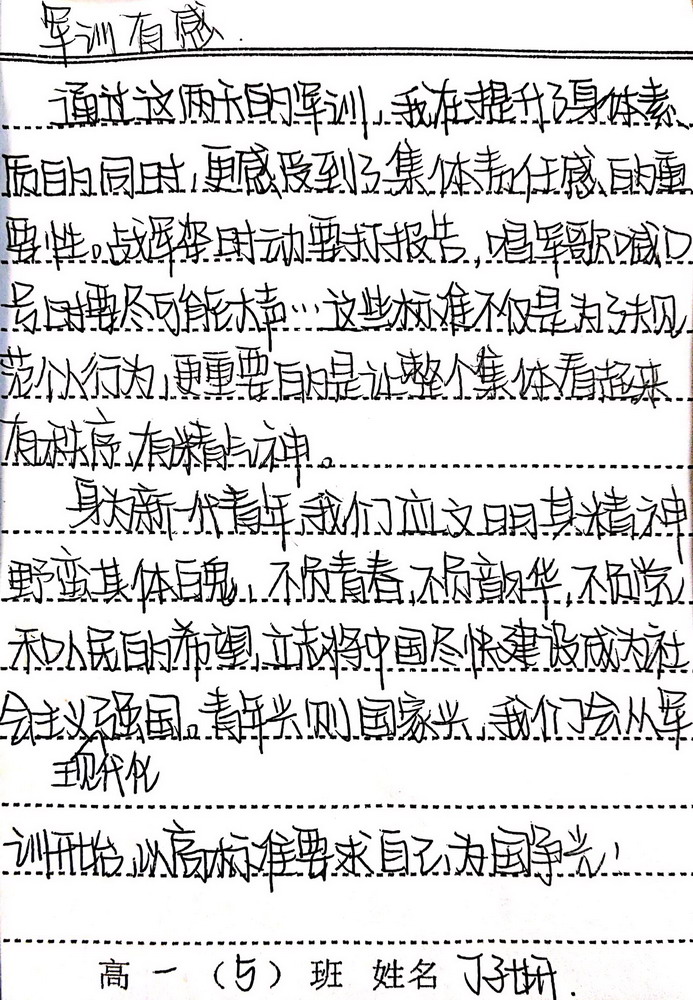 军训有感.
通过这两天的军训,我在提升了身体素
质的同时,更感受到了集体责任感的重
要性。战军姿时动要打报告,唱军歌喊口
号时要尽可能大声…这些标准不仅是为了规
范个人行为,更重要的是让整个集体看起来
有秩序,有精气神。
身为新一代青年,我们应文明其精神
野蛮其体魄,不负青春,不负韶华,不负党
和人民的希望,立志将中国尽快建设成为社
会主义强国。青年兴则国家兴,我们会从军
现代化
训开始,以高标准要求自己,为国争光!
高一(5)班 姓名 丁子妍.